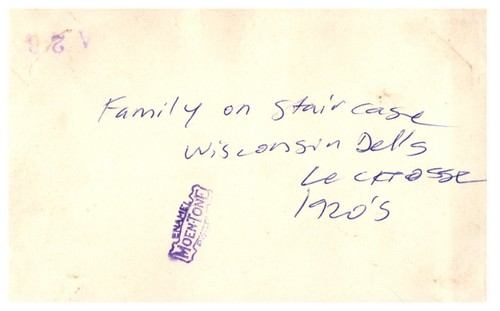 Family on staircase
Wisconsin Dells
Le CRosse
1920's
ENAMEL
MOEN-TONE